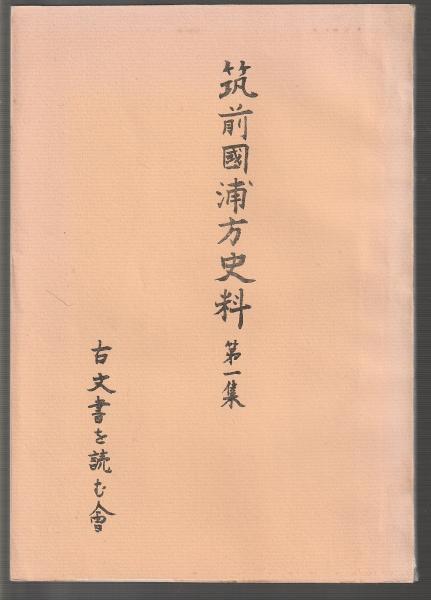 筑前國浦方史料 第一集
古文書を読む會